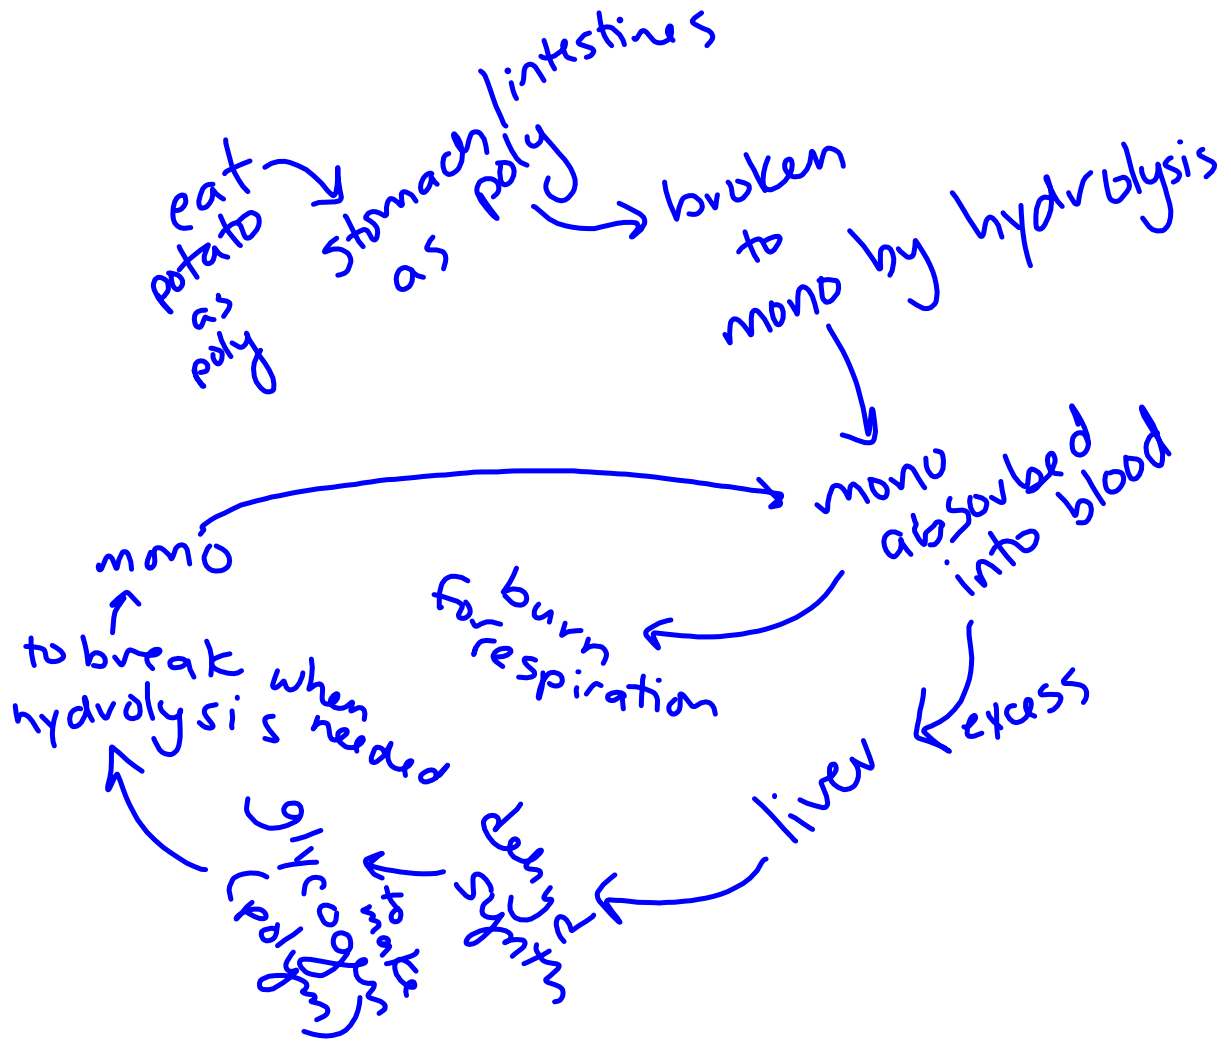 eat
potato
as
poly
stomach/intestines
as poly
broken
to
mono by hydrolysis
mono
absorbed
into blood
burn
for
respiration
excess
liver
dehy
synth
to make
glycogen
(poly)
to break when
hydrolysis is needed
mono